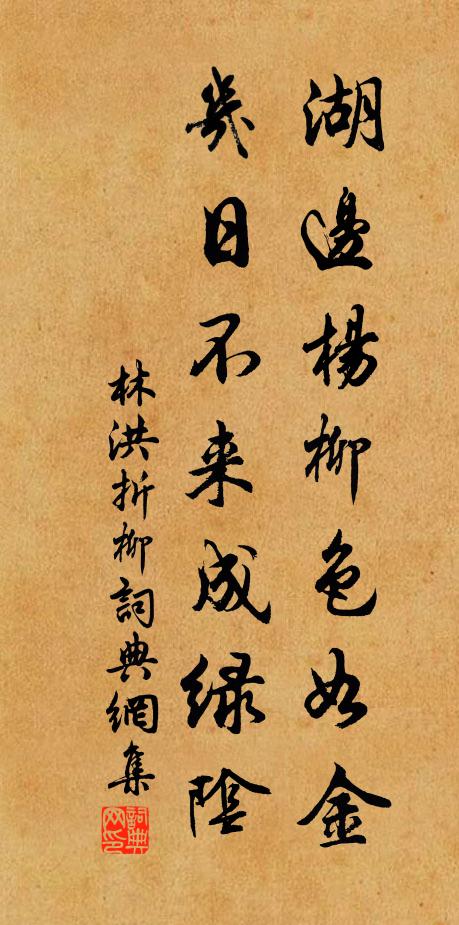 湖邊楊柳色如金
幾日不来成緑陰
林洪折柳詞典網集
詞典网印